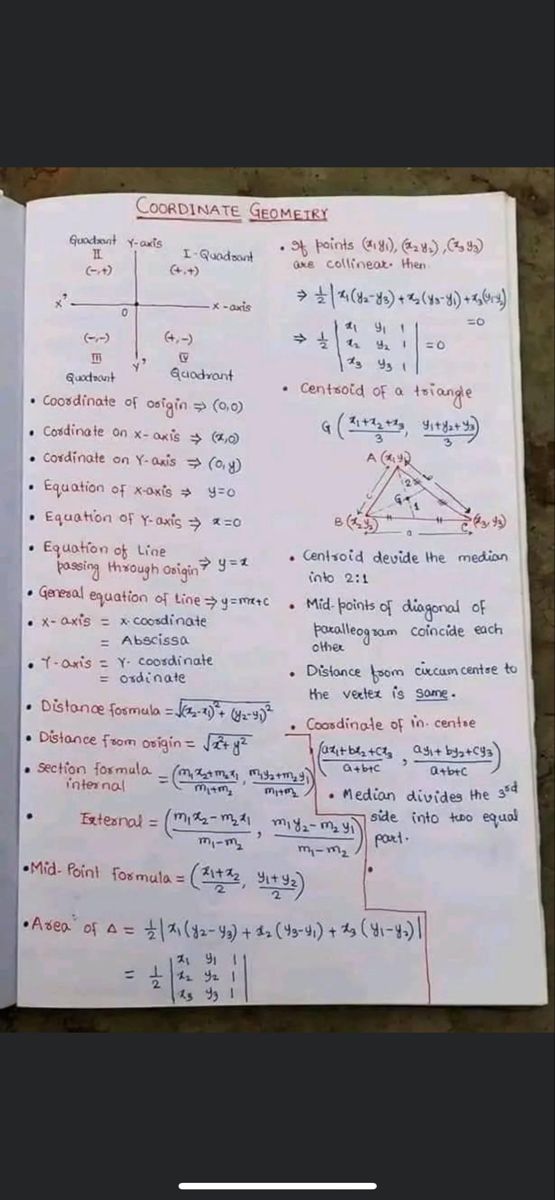 COORDINATE GEOMETRY
Quadrant Y-axis
II
I-Quadrant
(-,+)
(+,+)
x'
x-axis
0
(-,-)
(+,-)
III
Y'
IV
Quadrant
Quadrant
• Coordinate of origin ⇒ (0,0)
• Cordinate on x-axis ⇒ (x,0)
• Cordinate on Y-axis ⇒ (0,y)
• Equation of x-axis ⇒ y=0
• Equation of Y-axis ⇒ x=0
• Equation of Line
passing through Origin ⇒ y=x
• General equation of Line ⇒ y=mx+c
• x-axis = x-coordinate
= Abscissa
• Y-axis = Y-coordinate
= ordinate
• Distance formula = √(x₂-x₁)²+(y₂-y₁)²
• Distance from origin = √x²+y²
• Section formula
internal = (m₁x₂+m₂x₁/m₁+m₂, m₁y₂+m₂y₁/m₁+m₂)
• External = (m₁x₂-m₂x₁/m₁-m₂, m₁y₂-m₂y₁/m₁-m₂)
• Mid-Point formula = (x₁+x₂/2, y₁+y₂/2)
• Area of Δ = 1/2|x₁(y₂-y₃)+x₂(y₃-y₁)+x₃(y₁-y₂)|
= 1/2 | x₁ y₁ 1 |
| x₂ y₂ 1 |
| x₃ y₃ 1 |
• If points (x₁y₁), (x₂y₂), (x₃y₃)
are collinear then
⇒ 1/2|x₁(y₂-y₃)+x₂(y₃-y₁)+x₃(y₁-y₂)|
=0
⇒ 1/2 | x₁ y₁ 1 |
| x₂ y₂ 1 | =0
| x₃ y₃ 1 |
• Centroid of a triangle
G (x₁+x₂+x₃/3, y₁+y₂+y₃/3)
A (x₁y₁)
c
2
b
G
1
B (x₂y₂)
C (x₃,y₃)
a
• Centroid devide the median
into 2:1
• Mid-points of diagonal of
paralleogram coincide each
other
• Distance from circumcentre to
the vertex is same.
• Coordinate of in-centre
(ax₁+bx₂+cx₃/a+b+c, ay₁+by₂+cy₃/a+b+c)
• Median divides the 3rd
side into two equal
part.